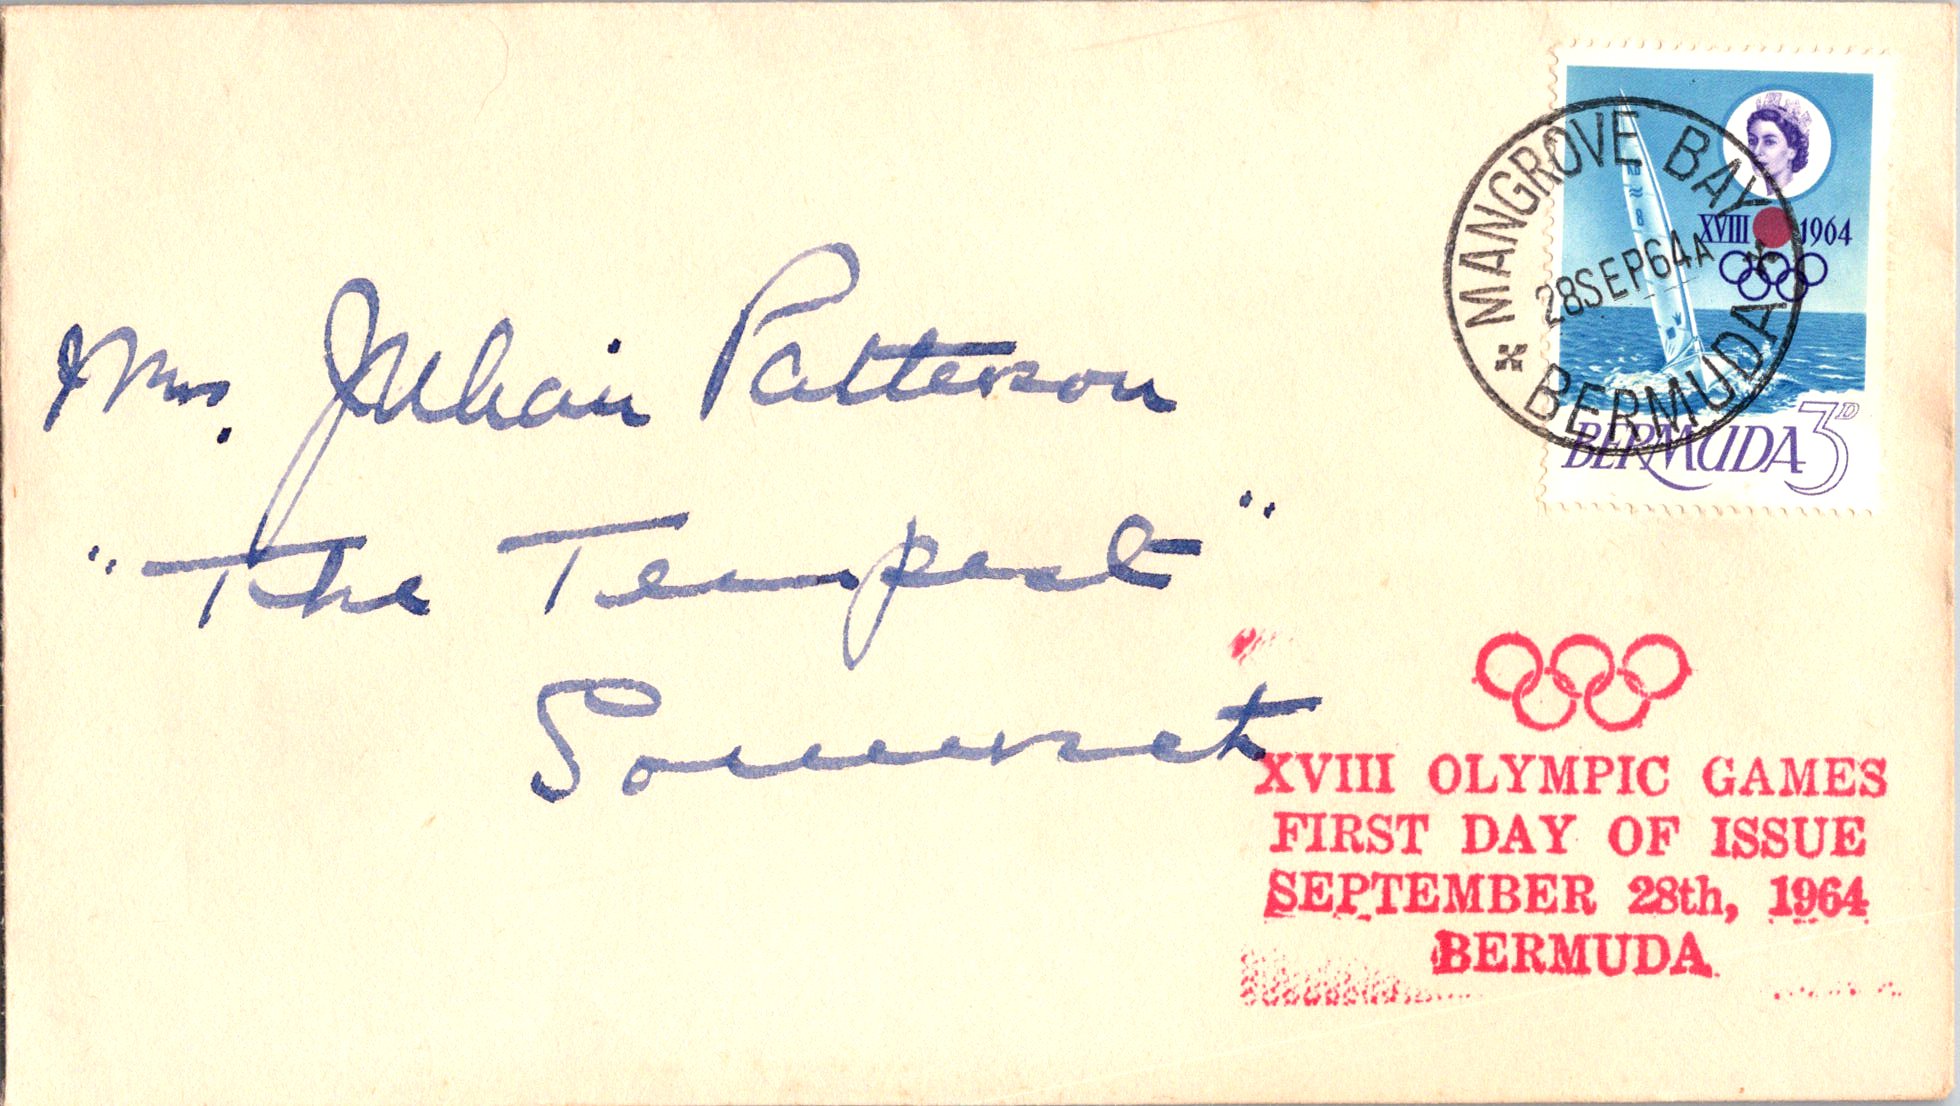 Mrs. Julian Patterson
"The Tempest"
Somerset
MANGROVE BAY
28SEP64A
BERMUDA
XVIII 1964
BERMUDA 3D
XVIII OLYMPIC GAMES
FIRST DAY OF ISSUE
SEPTEMBER 28th, 1964
BERMUDA